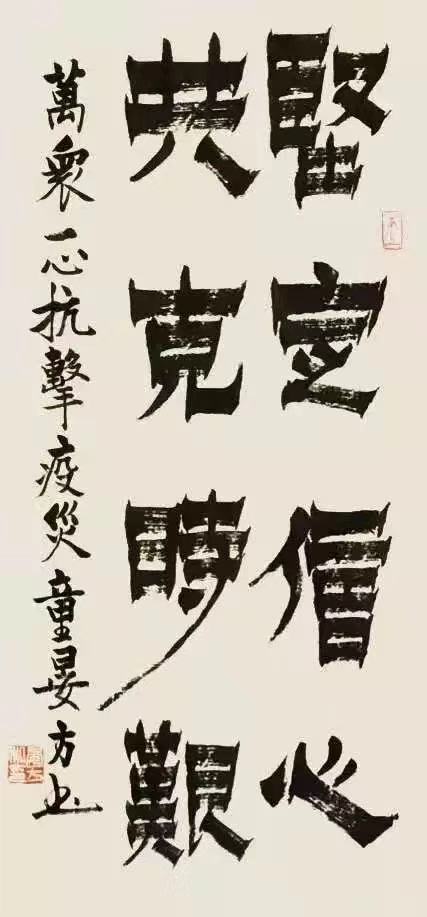 堅定信心
共克時艱
萬眾一心抗擊疫災童晏方书